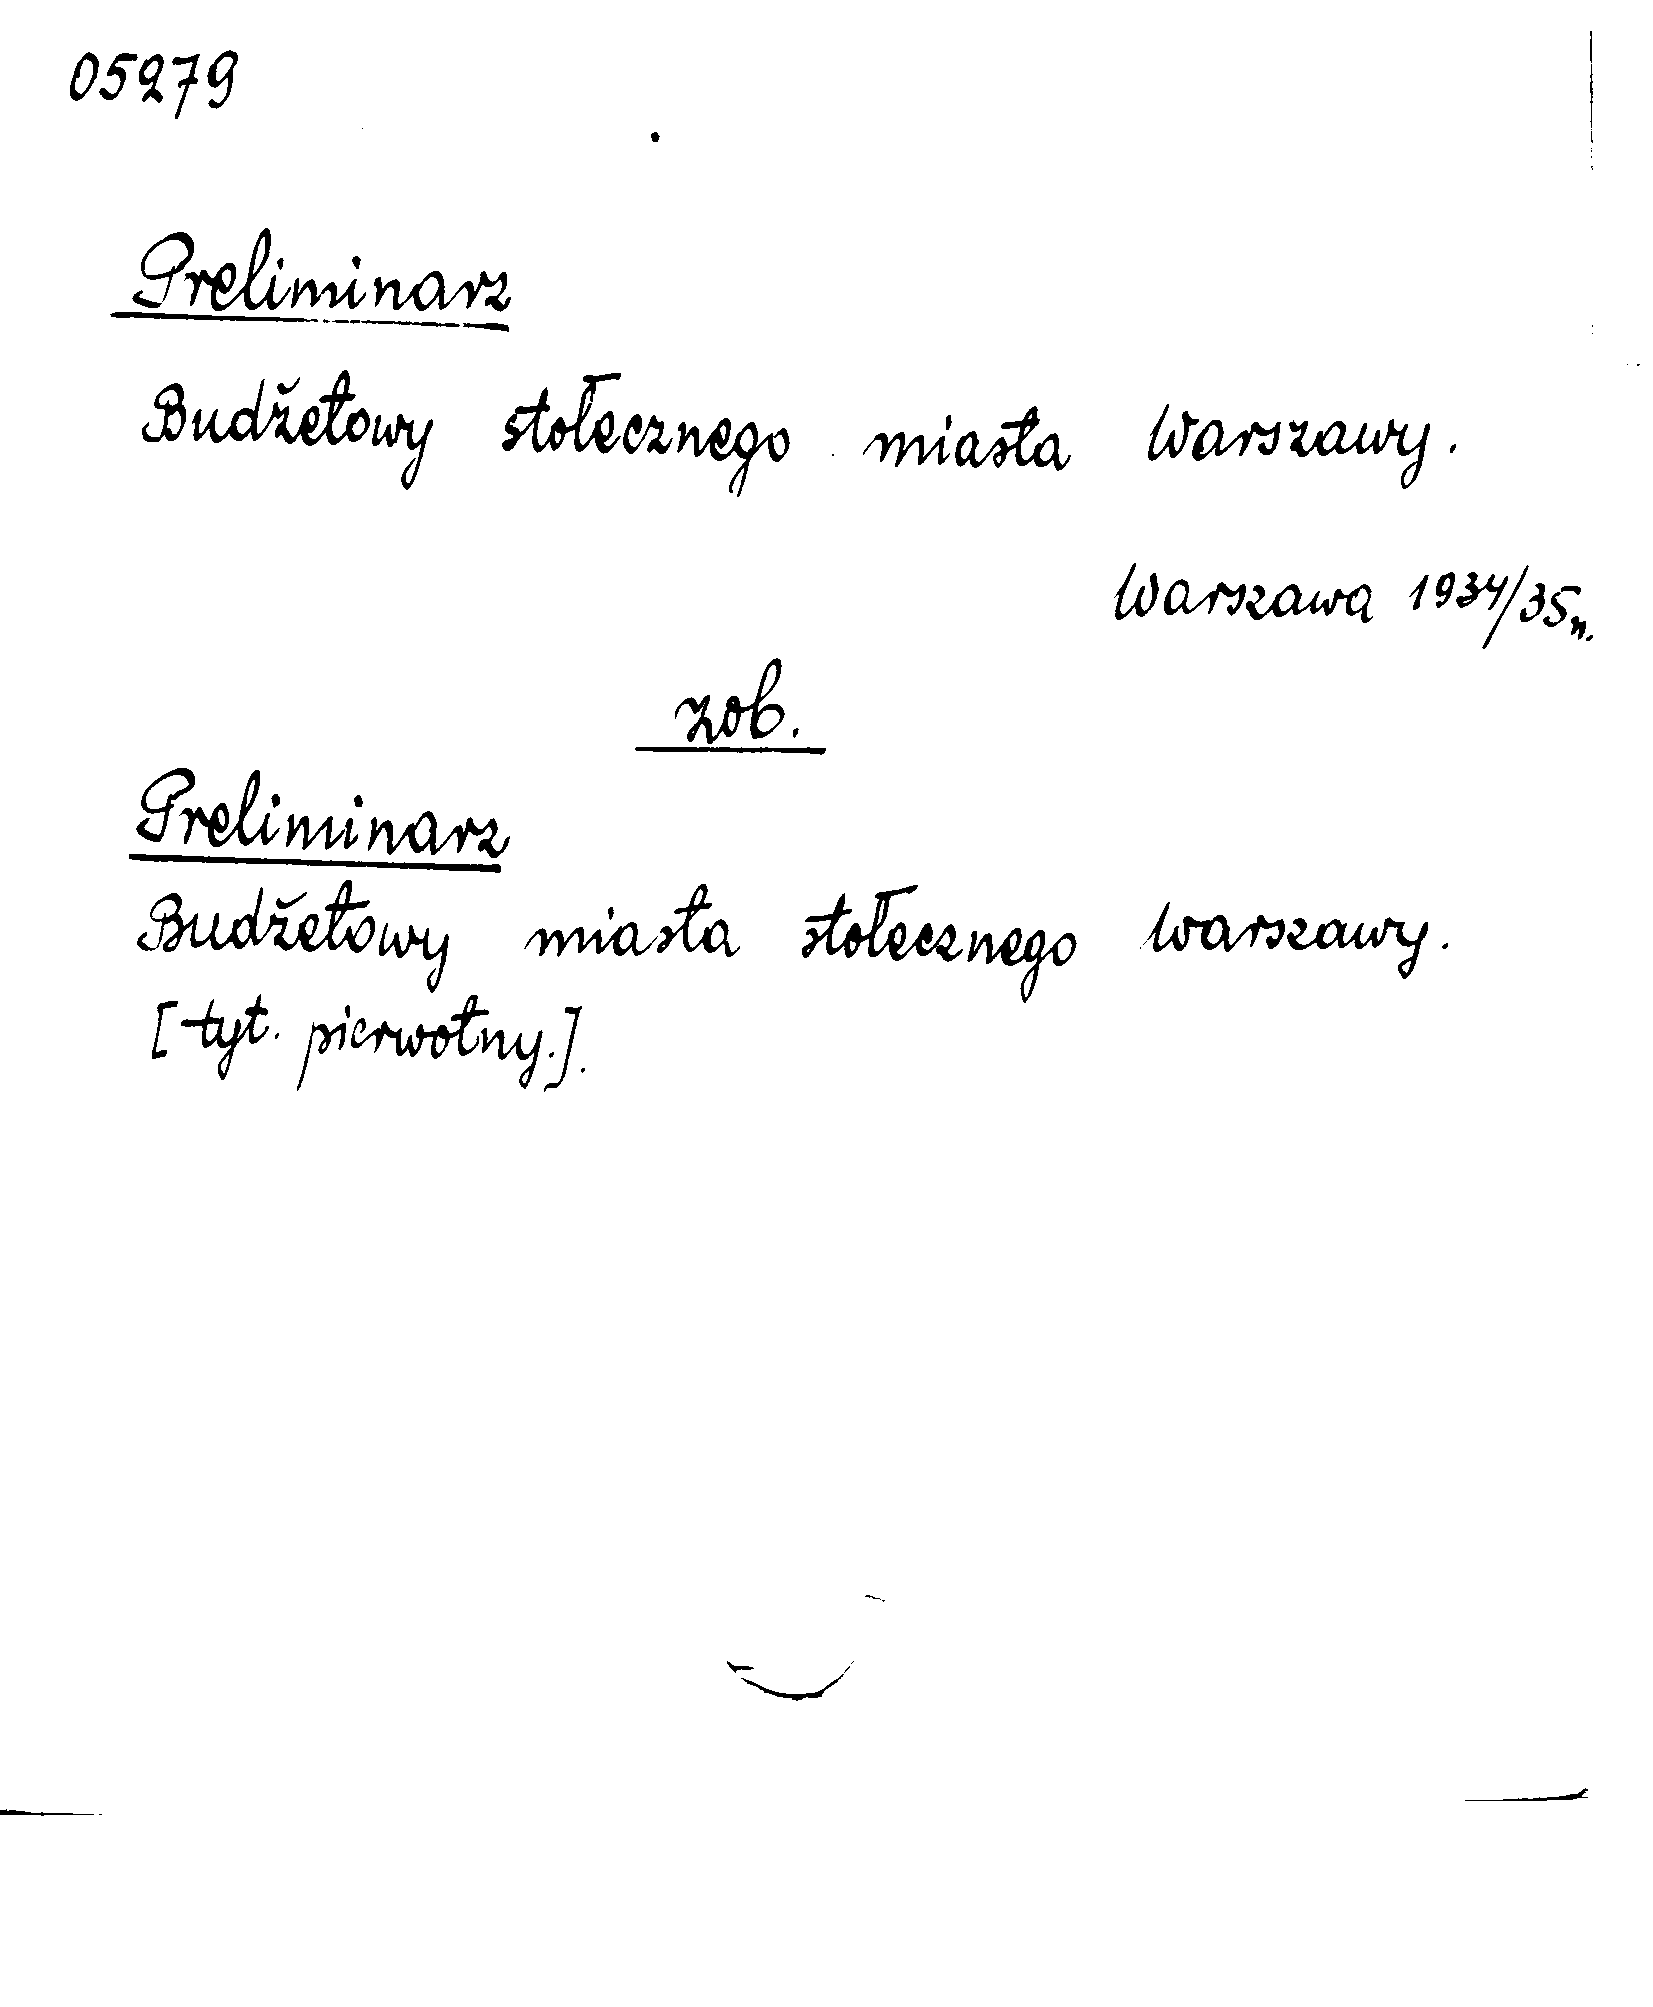 05279
Preliminarz
Budżetowy stołecznego miasta Warszawy.
Warszawa 1934/35n.
zob.
Preliminarz
Budżetowy miasta stołecznego Warszawy.
[tyt. pierwotny.].